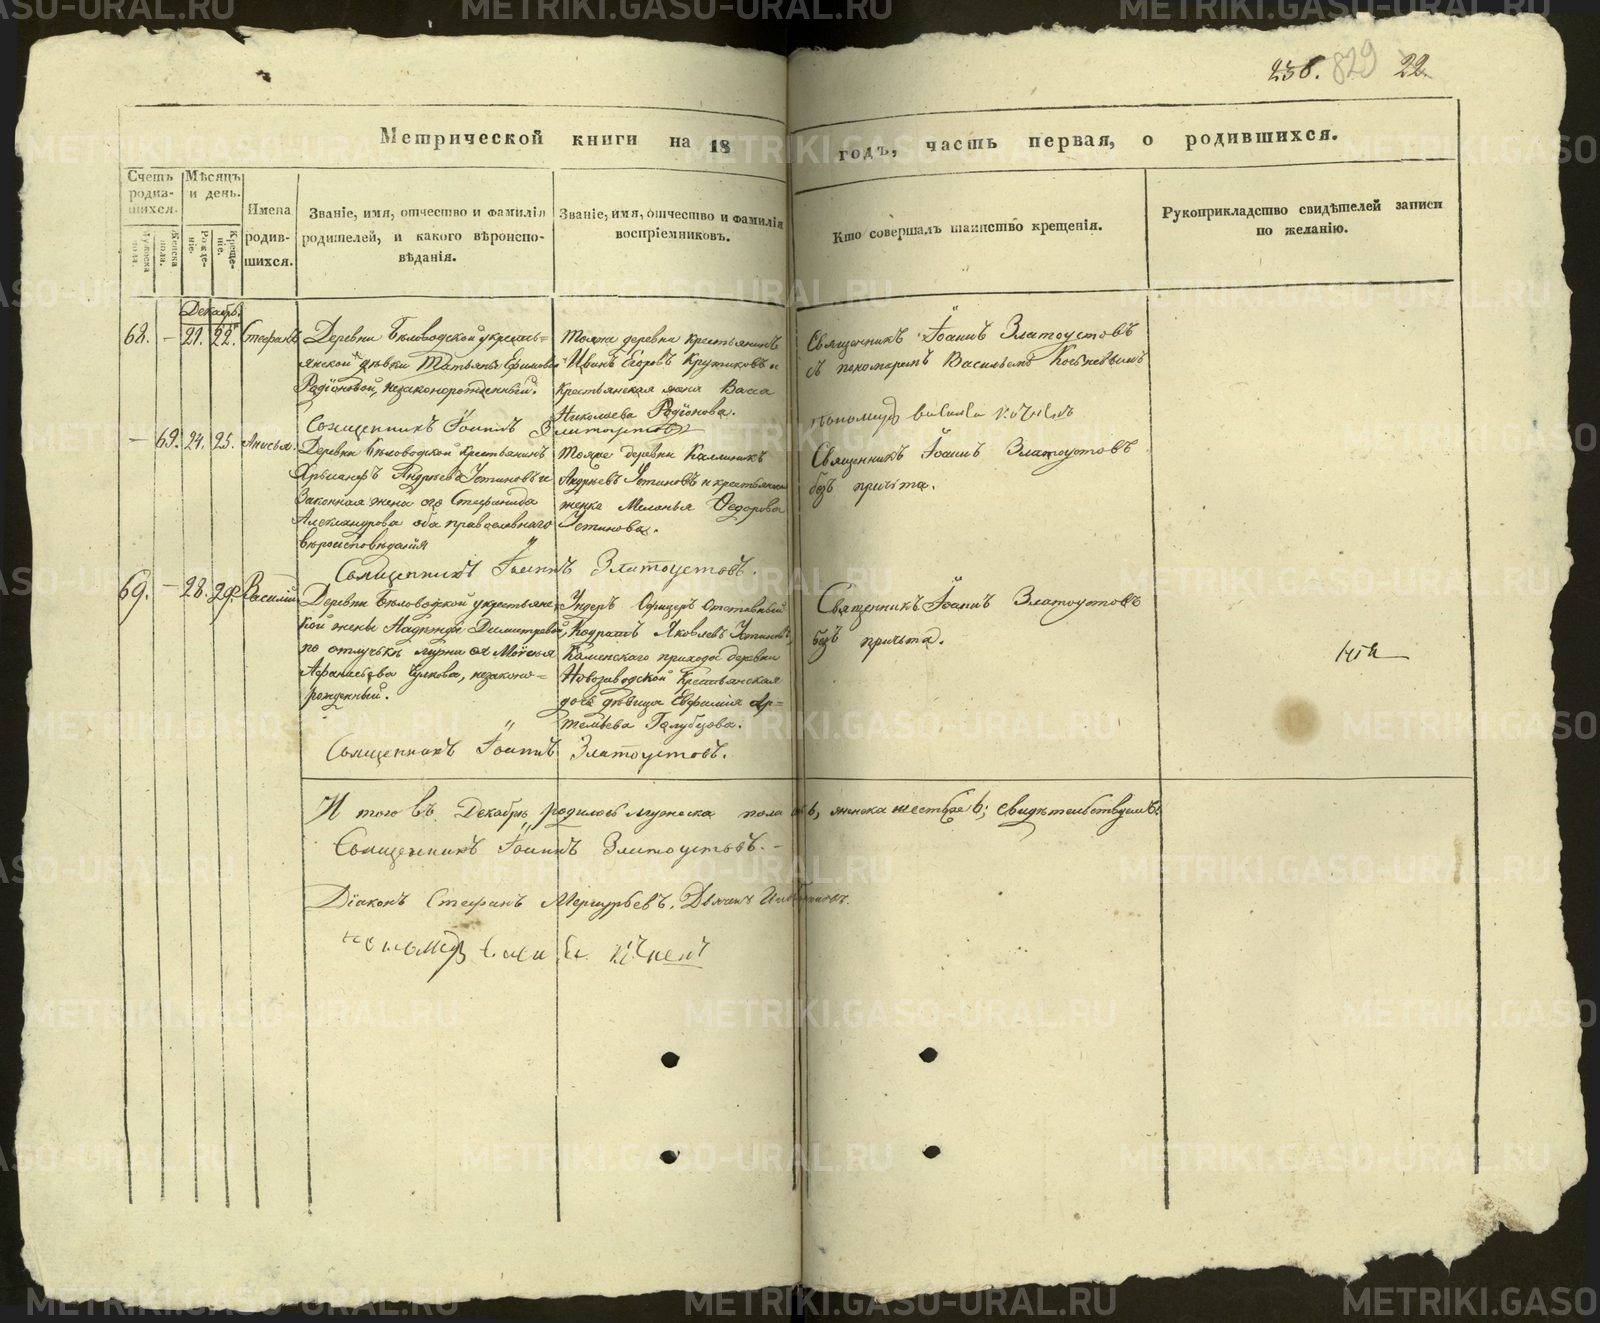 238. 829 22.
Метрической книги на 18 годъ, часть первая, о родившихся.
Счетъ родившихся.
Мужеска пола.
Женска пола.
Мѣсяцъ и день.
Рожденіе.
Крещеніе.
Имена родившихся.
Званіе, имя, отчество и фамилія родителей, и какого вѣроисповѣданія.
Званіе, имя, отчество и фамилія воспріемниковъ.
Кто совершалъ таинство крещенія.
Рукоприкладство свидѣтелей записи по желанію.
Декабрь
68. – 21. 22. Стефанъ
Деревни Бѣловодской у кресть=
янской дѣвки Татьяны
Радіоновой, незаконорожденный.
Тояже деревни крестьянинъ
Иванъ Егоровъ Крутиковъ и
Крестьянская жена Васса
Николаева Радіонова.
Священникъ Іоаннъ Златоустовъ
съ пономаремъ Васильемъ
Священникъ Іоаннъ Златоустовъ
– 69. 24. 25. Анисья.
Деревни Бѣловодской крестьянинъ
Андреевъ Устиновъ и
Законная жена его Стефанида
Александрова оба православнаго
вѣроисповѣданія
Тояже деревни Каллиникъ
Андреевъ Устиновъ и крестьянская
женка Меланья Федорова
Устинова.
Священникъ Іоаннъ Златоустовъ
безъ причта.
Священникъ Іоаннъ Златоустовъ.
69. – 28. 29. Василій
Деревни Бѣловодской у крестьянс
кой жены Надежды Димитревой,
по отлучкѣ мужа ея Моѵсея
Афанасьева незаконо=
рожденный.
Ундеръ Офицеръ Отставный
Кодратъ Яковлевъ Устиновъ,
Каменскаго прихода деревни
Новозаводской Крестьянская
дочь дѣвица Евфимія Ар=
темьева Голубцова.
Священникъ Іоаннъ Златоустовъ
безъ причта.
Священникъ Іоаннъ Златоустовъ.
И того въ Декабрѣ родилось мужеска пола 6, женска шесть 6; свидѣтельствуемъ
Священникъ Іоаннъ Златоустовъ. –
Діаконъ Стефанъ Меркурьевъ. Дьячекъ